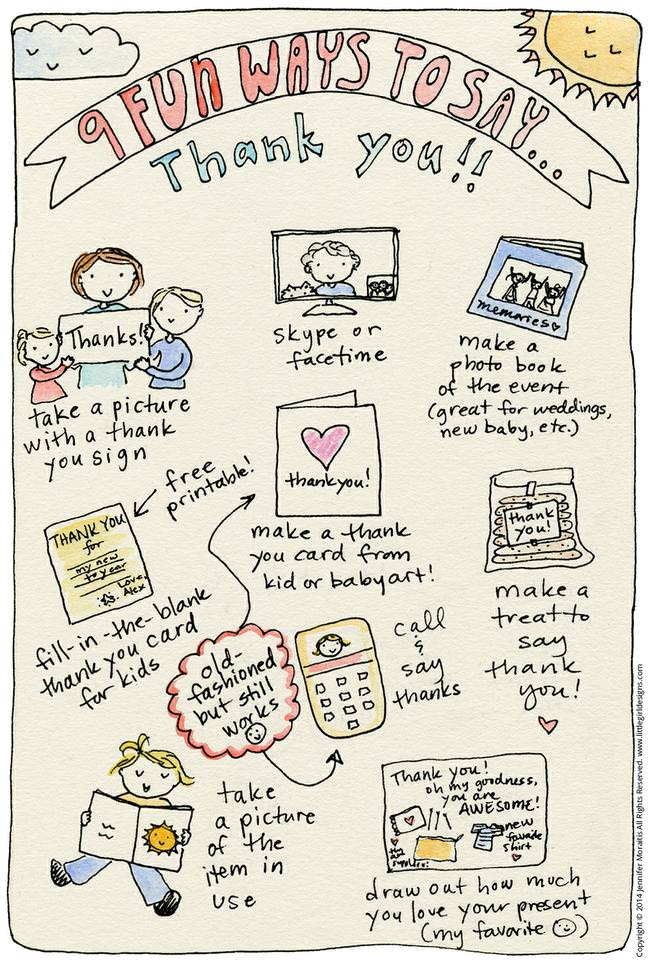 9 FUN WAYS TO SAY...
Thank you!!
Thanks!
take a picture
with a thank
you sign
skype or
facetime
memories
make a
photo book
of the event
(great for weddings,
new baby, etc.)
free
printable!
THANK YOU
for
my new
toy car
Love,
Alex
fill-in-the-blank
thank you card
for kids
thank you!
make a thank
you card from
kid or baby art!
thank
you!
make a
treat to
say
thank
you!
old-
fashioned
but still
works
call
&
say
thanks
take
a picture
of the
item in
use
Thank you!
oh my goodness,
you are
AWESOME!
new
favorite
shirt
draw out how much
you love your present
(my favorite ☺)
Copyright © 2014 Jennifer Moraitis All Rights Reserved. www.littlegirldesigns.com